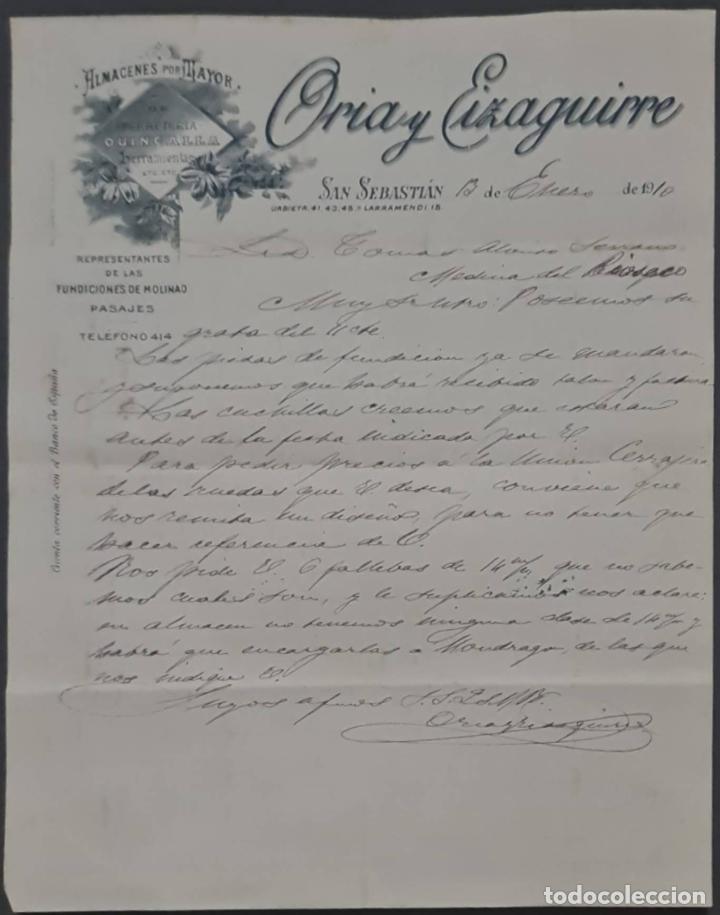 ALMACENES POR MAYOR
DE
FERRETERIA
QUINCALLA
Herramientas
ETC. ETC.
Oria y Eizaguirre
SAN SEBASTIÁN 13 de Enero de 1910
URBIETA, 41, 43, 45 Y LARRAMENDI, 15.
REPRESENTANTES
DE LAS
FUNDICIONES DE MOLINAO
PASAJES
TELÉFONO 414
Cuenta corriente con el Banco de España
Tomas Alonso Serrano
Medina del Rioseco
Muy Sr. ntro: Poseemos su
grata del 11 cte.
Las piezas de fundicion ya se mandaron
y suponemos que habrá recibido talon y factura
Las cuchillas creemos que estarán
antes de la fecha indicada por V.
Para pedir precios á la Union Cerrajera
de las ruedas que V. desea, conviene que
nos remita un diseño, para no tener que
hacer referencia de V.
Nos pide V. 6 fallebas de 14 m/m que no sabe-
mos cuales son, y le suplicamos nos aclare:
en almacen no tenemos ninguna clase de 14 m/m y
habrá que encargarlas a Mondragon, de las que
nos indique V.
Suyos afmos S.S.
Oria y Eizaguirre
todocoleccion
todocoleccion.net